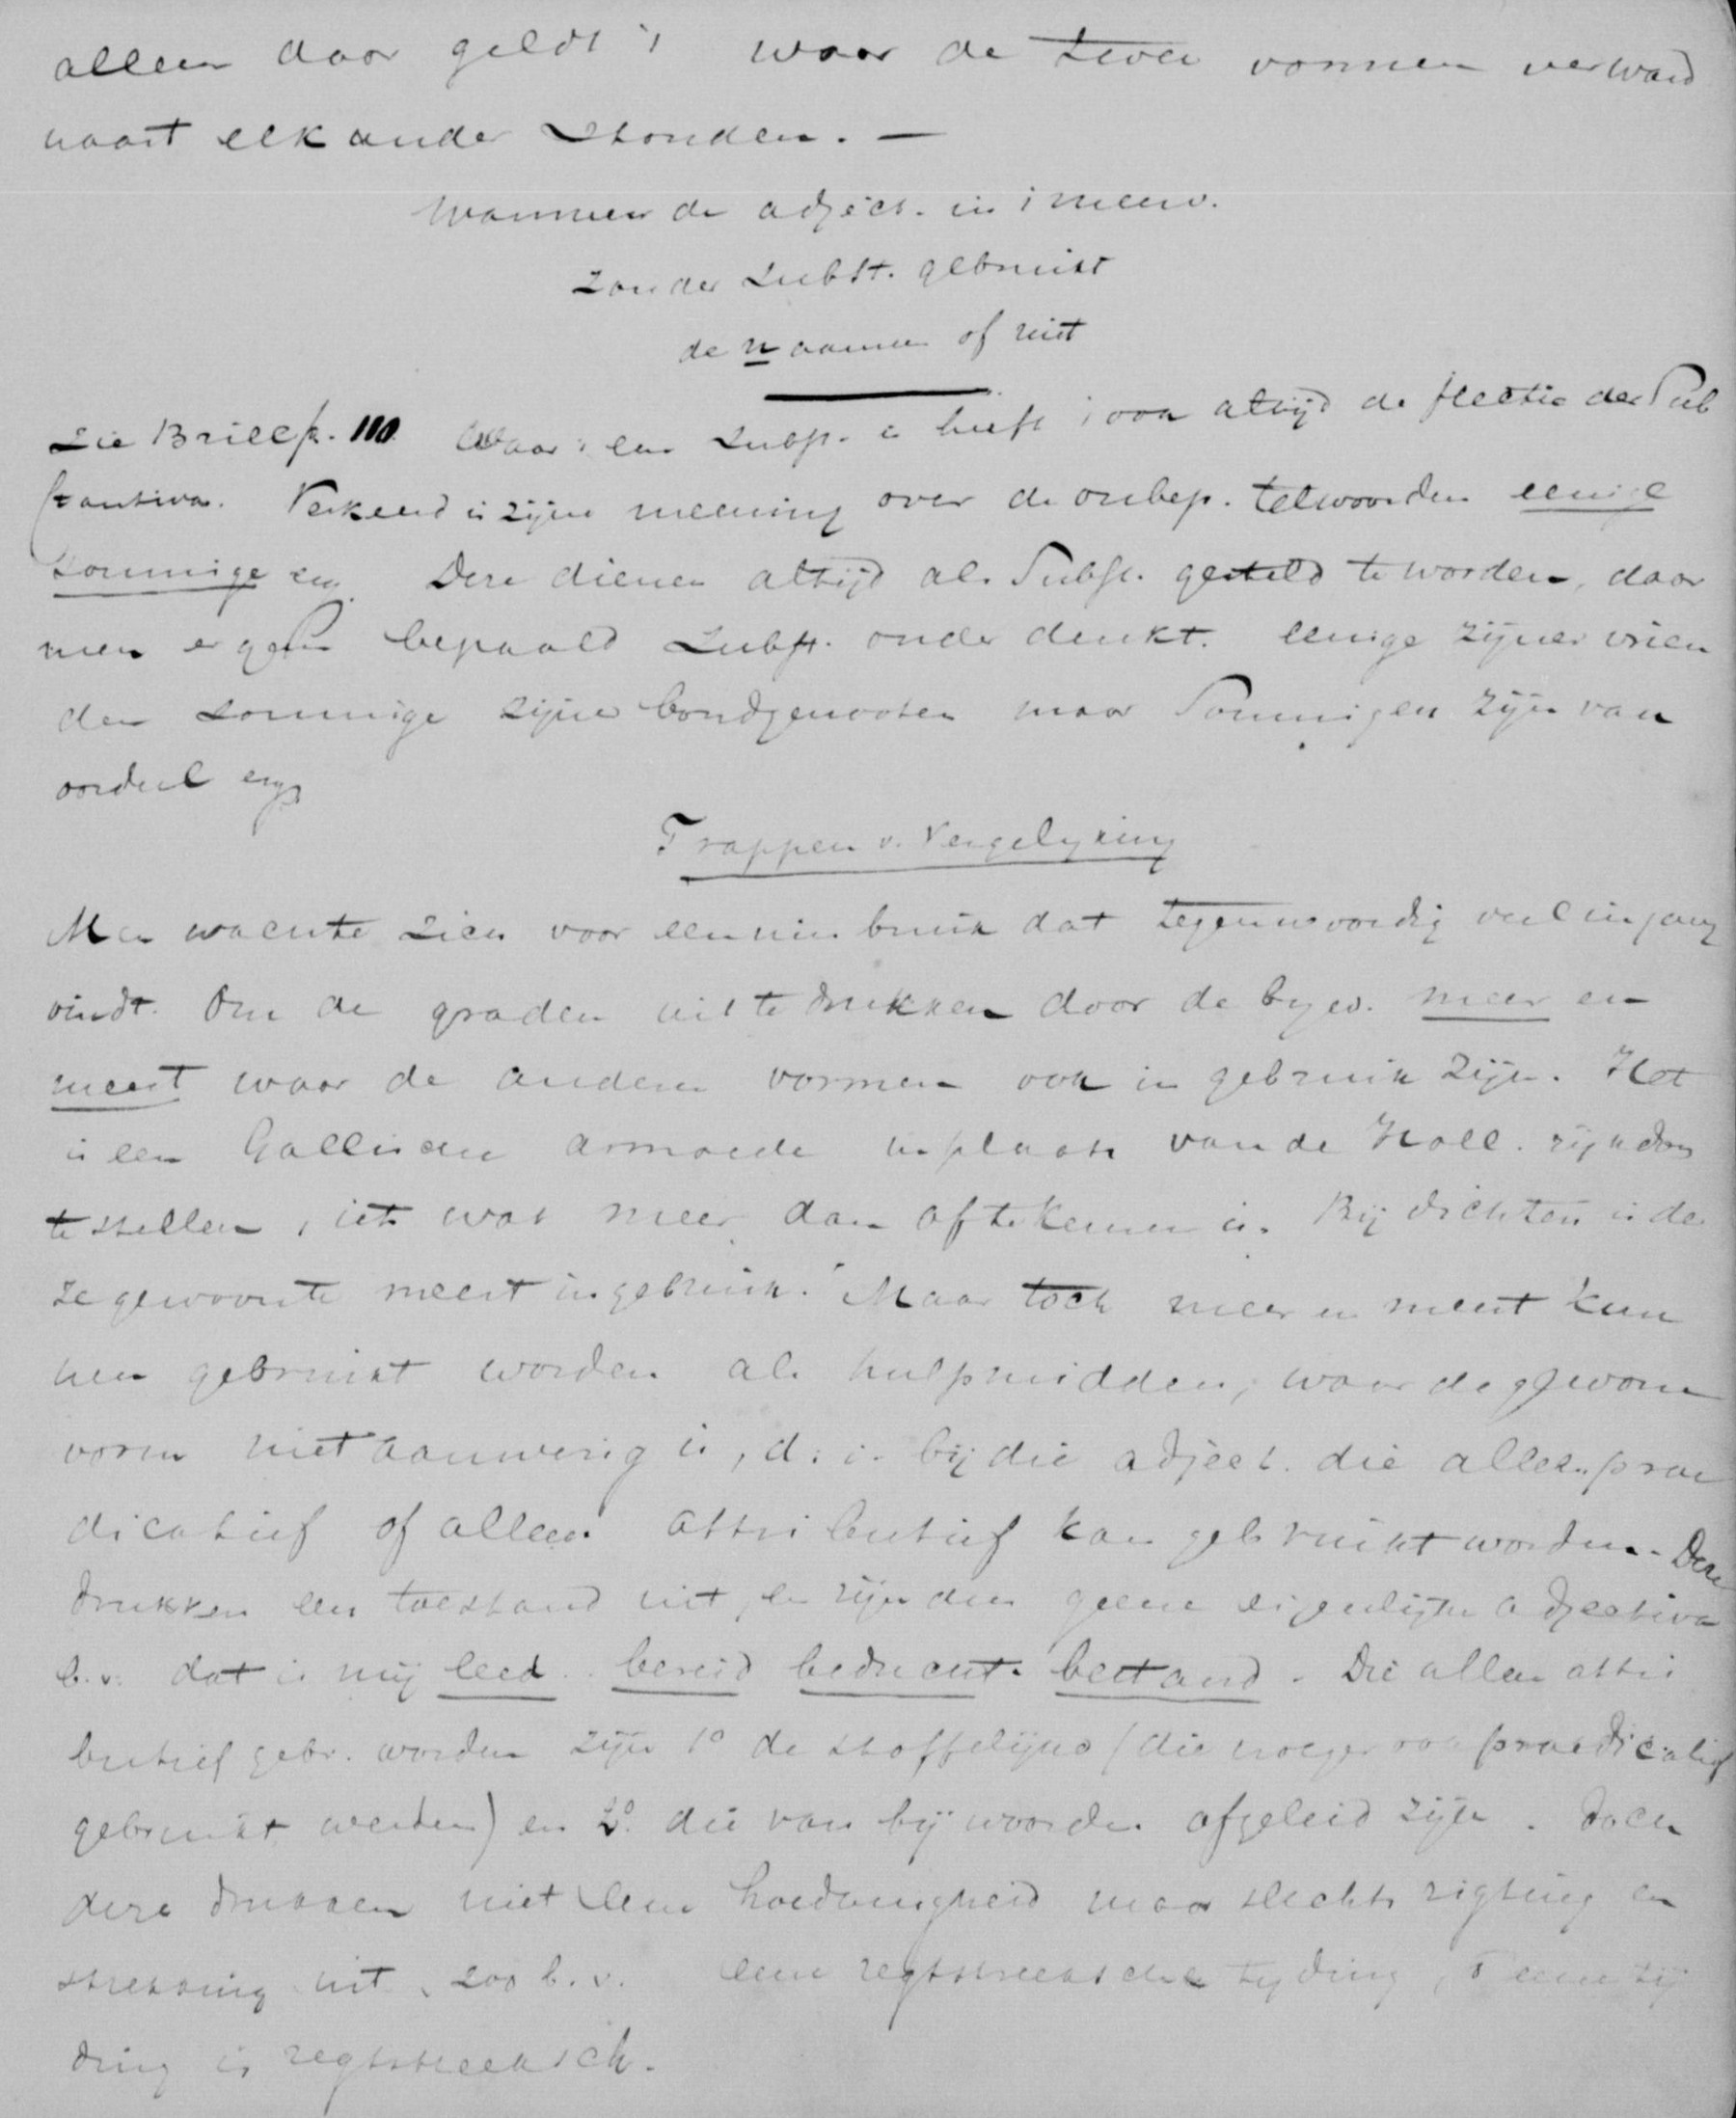 alleen daar geldt 't waar de twee vormen verward
naast elkander stonden. —
Wanneer de adject. in 't meerv.
zonder Subst. gebruikt
de n aannemen of niet
Zie Brill p. 110. Waar 't een Subst. is heeft 't ook altijd de flectie der Sub
stantiva. Verkeerd is zijne meening over de onbep. telwoorden eenige
sommige enz. Deze dienen altijd als Subst. gesteld te worden, daar
men er geen bepaald Subst. onder denkt. Eenige zijner vrien
den sommige zijner bondgenooten maar Sommigen zijn van
oordeel enz
Trappen v. Vergelyking
Men wachte zich voor een misbruik dat tegenwoordig veel ingang
vindt. Om de graden uit te drukken door de byw. meer en
meest waar de andere vormen ook in gebruik zijn. Het
is een Gallische armoede in plaats van de Holl. rijkdom
te stellen, iets wat meer dan af te keuren is. Bij dichters is de
ze gewoonte meest in gebruik. Maar toch meer en meest kun
nen gebruikt worden als hulpmiddel, waar de gewone
vorm niet aanwezig is, d. i. bij die adject. die alleen prae
dicatief of alleen attributief kan gebruikt worden. Deze
drukken een toestand uit, en zijn dus geene eigenlijke adjectiva
b.v. dat is mij leed. bereid beducht. bestand. Die alleen attri
butief gebr. worden zijn 1o de stoffelijke (die vroeger ook praedicatief
gebruikt werden) en 2o. die van bijwoorden afgeleid zijn. Doch
deze drukken niet eene hoedanigheid maar slechts rigting en
strekking uit, zoo b.v. eene regtstreeksche tyding, eene tij
ding is regtstreeksch.